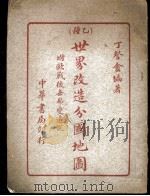 (乙種)
丁詧盦編著
世界改造分國地圖
附歐戰後各幣變遷記
中華書局印行